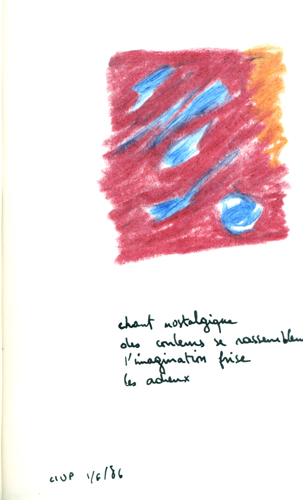 chant nostalgique
des couleurs se rassemblen
l'imagination frise
les adieux
CIUP 1/6/86